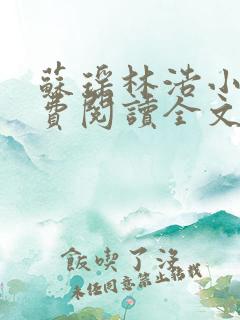 蘇瑶林浩小
費閱讀全文
飯喫了沒
未經同意禁止轉載